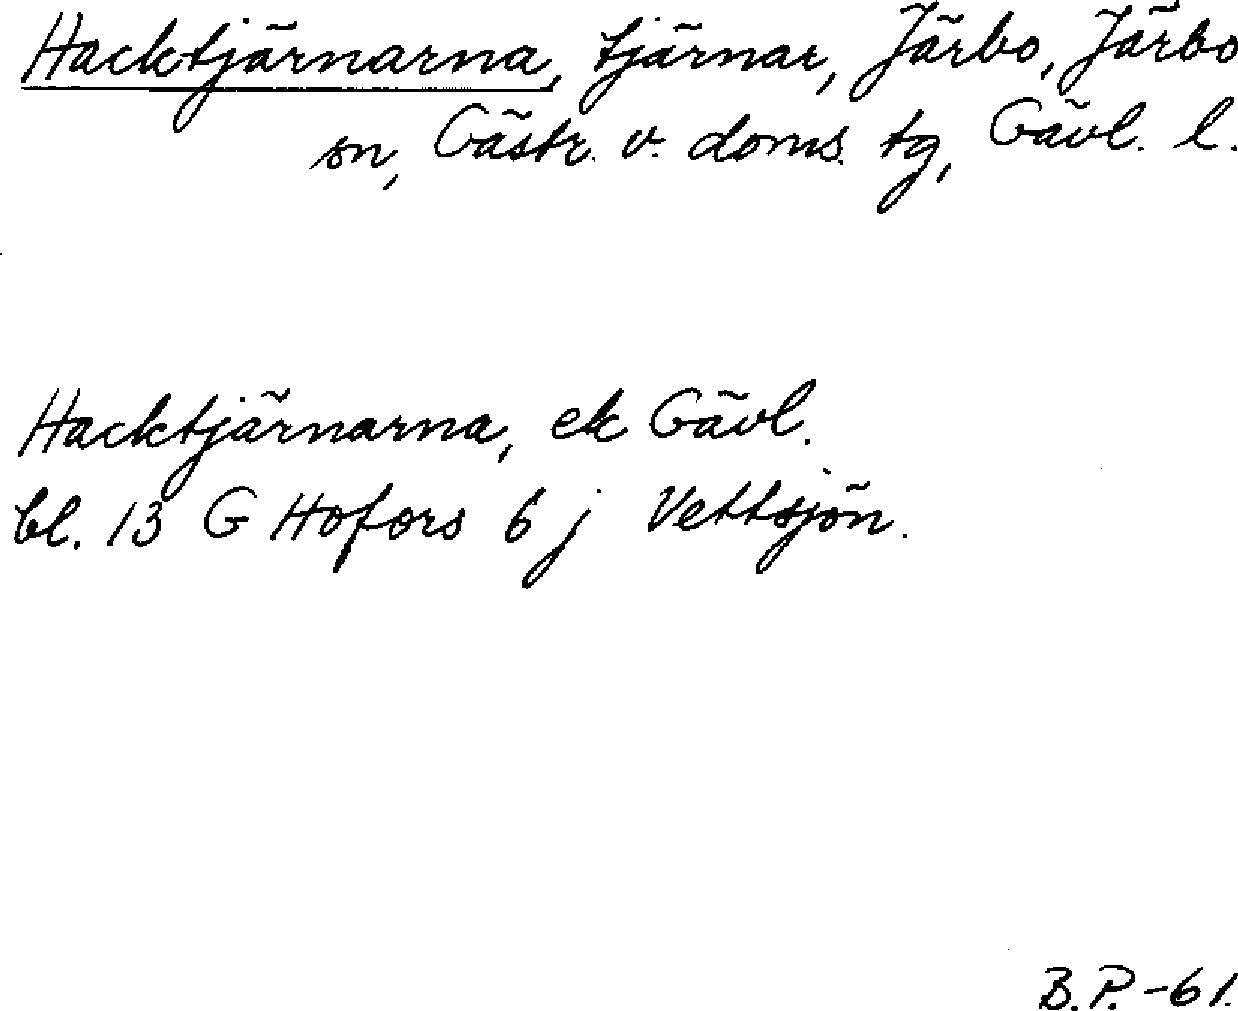 Hacktjärnarna, tjärnar, Järbo, Järbo
sn, Gästr. v. doms. tg, Gävl. l.
Hacktjärnarna, ek Gävl.
bl. 13 G Hofors 6 j Vettsjön.
B.P. -61.